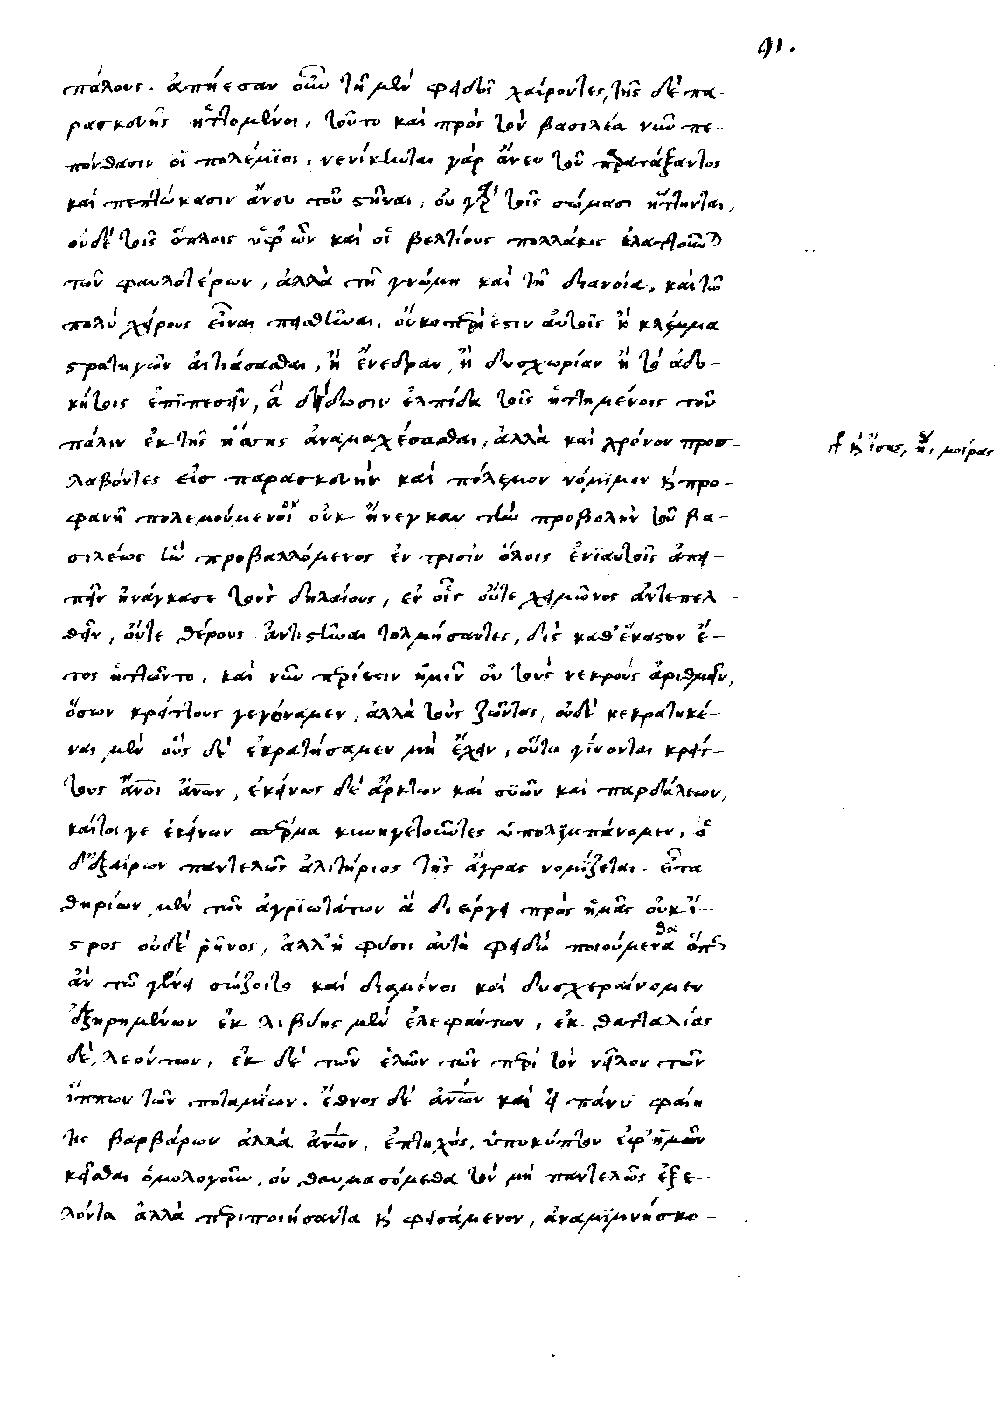 91.
σπάλους. ἀπῄεσαν οὖν τῇ μὲν φειδοῖ χαίροντες, τῆς δὲ πα-
ρασκευῆς ἡττώμενοι, τοῦτο καὶ πρὸς τὸν βασιλέα νῦν πε-
πόνθασιν οἱ πολέμϊοι, νενίκηνται γὰρ ἄνευ τοῦ παρατάξασθαι
καὶ πεπτώκασιν ἄνευ τοῦ στῆναι, οὐ γὰρ τοῖς σώμασι ἥττηνται,
οὐδὲ τοῖς ὅπλοις ὑφ' ὧν καὶ οἱ βελτίους πολλάκις ἐλαττοῦνται
τῶν φαυλοτέρων, ἀλλὰ τῇ γνώμῃ καὶ τῇ διανοίᾳ, καὶ τῷ
πολὺ χείρους εἶναι πεισθῆναι, οὔκουν περίεστιν αὐτοῖς ἢ κλέμμα
στρατηγῶν αἰτιάσασθαι, ἢ ἐνέδραν, ἢ δυσχωρίαν ἢ τὸ ἀδο-
κήτοις ἐπιπεσεῖν, ἃ δίδωσιν ἐλπίδα τοῖς ἡττημένοις τοῦ
πάλιν ἐκ τῆς ἥττης ἀναμαχέσασθαι, ἀλλὰ καὶ χρόνον προσ-
λαβόντες εἰς παρασκευὴν καὶ πόλεμον νόμϊμον καὶ προ-
φανῆ πολεμούμενοι οὐκ ἤνεγκαν τὴν προβολὴν τοῦ βα-
σιλέως ἣν προβαλλόμενος ἐν τρισὶν ὅλοις ἐνϊαυτοῖς ἀπει-
πεῖν ἠνάγκασε τοὺς δηλαίους, ἐν οἷς οὔτε χειμῶνος ἀντεπελ-
θεῖν, οὔτε θέρους ἀντιστῆναι τολμήσαντες, δὶς καθ' ἕκαστον ἔ-
τος ἡττῶντο, καὶ νῦν περίεστιν ἡμῖν οὐ τοὺς νεκροὺς ἀριθμεῖν,
ὅσων κρείττους γεγόναμεν, ἀλλὰ τοὺς ζῶντας, οὐδὲ κεκρατηκέ-
ναι μὲν οὓς δὲ ἐκρατήσαμεν μὴ ἔχειν, οὕτω γίνονται κρείτ-
τους ἄνοι ἄνων, ἐκείνως δὲ ἄρκτων καὶ συῶν καὶ παρδάλεων,
καίτοι γε ἐκείνων σπέρμα κυνηγετοῦντες ὑπολιμπάνομεν, ὁ
δ' ἐξαίρων παντελῶς ἀλιτήριος τῆς ἄγρας νομίζεται. εἶτα
θηρίων μὲν τῶν ἀγρϊωτάτων ἃ διείργει πρὸς ἡμᾶς οὐκ ἴ-
στρος οὐδὲ ῥῆνος, ἀλλ' ἡ φύσις αὐτὴ φειδὼ ποιούμεθα ὅπως
ἂν τῷ γένει σώζοιτο καὶ διαμένοι καὶ δυσχεραίνομεν
ἐξῃρημένων ἐκ λιβύης μὲν ἐλεφάντων, ἐκ θετταλίας
δὲ, λεόντων, ἐκ δὲ τῶν ἑλῶν τῶν περὶ τὸν νεῖλον τῶν
ἵππων τῶν ποταμΐων. ἔθνος δὲ ἀνων καὶ εἰ πάνυ φαίη
τις βαρβάρων ἀλλὰ ἀνων, ἐπτηχὸς, ὑποκύπτον ἐφ' ἡμῶν
κεῖσθαι ὁμολογοῦν, οὐ θαυμασόμεθα τὸν μὴ παντελῶς ἐξε-
λόντα ἀλλὰ περιποιήσαντα καὶ φεισάμενον, ἀναμϊμνήσκο-
καὶ ἴσης, μοίρας